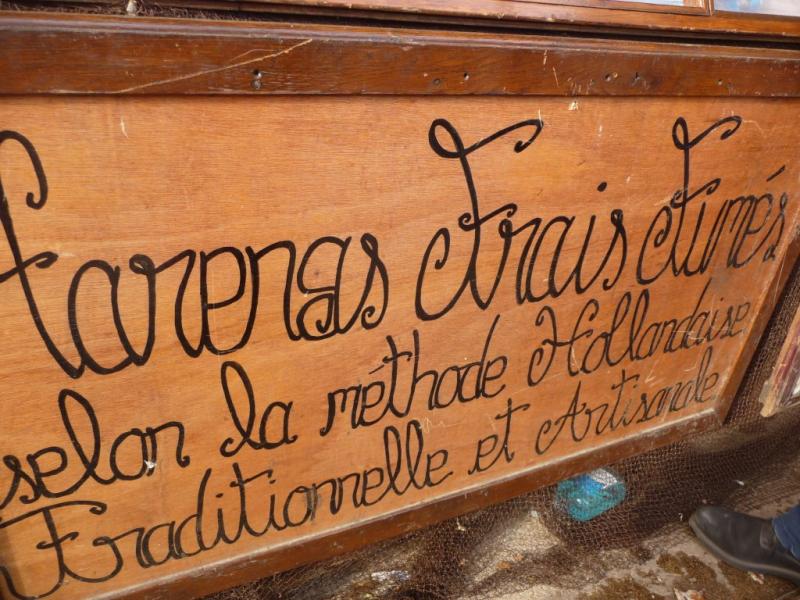 Harengs Frais Fumés
selon la méthode Hollandaise
Traditionnelle et Artisanale